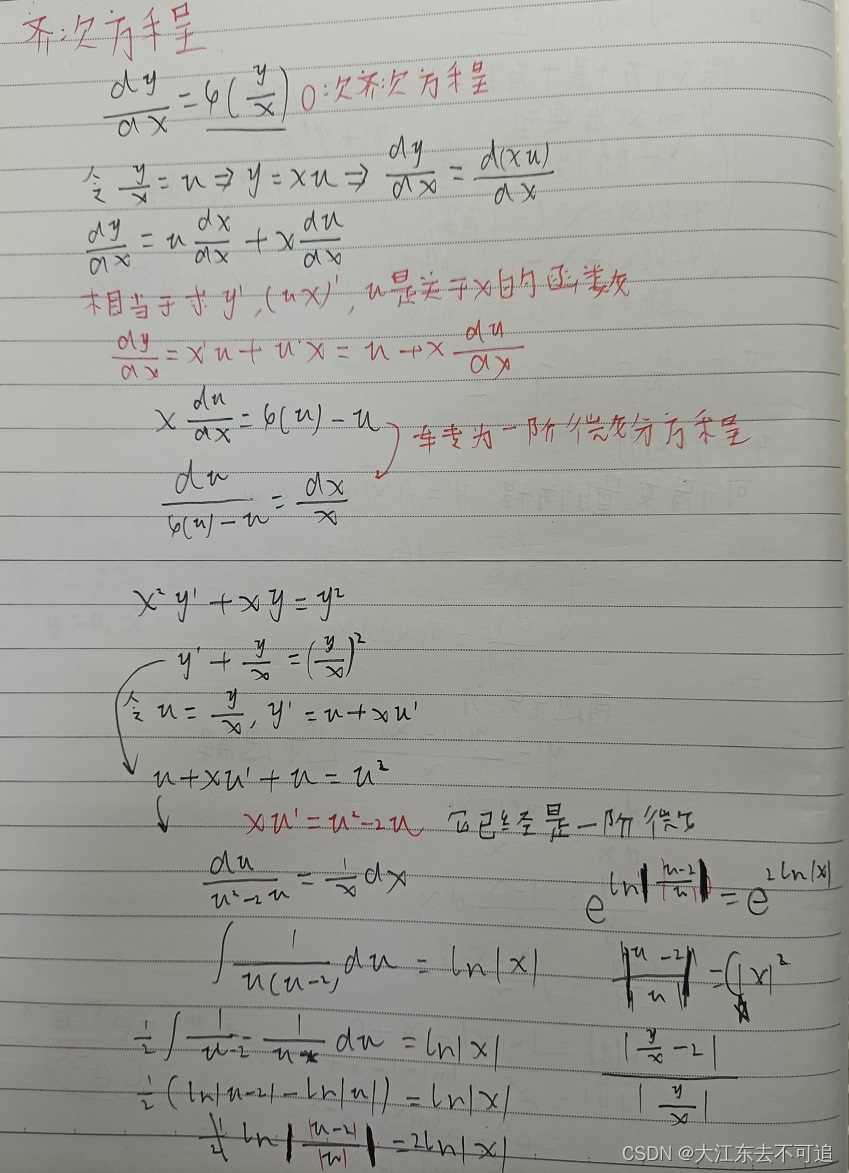 齐次方程
dy/dx = φ(y/x) 0次齐次方程
令 y/x = u ⇒ y = xu ⇒ dy/dx = d(xu)/dx
dy/dx = u dx/dx + x du/dx
相当于求y', (ux)', u是关于x的函数
dy/dx = x'u + u'x = u + x du/dx
x du/dx = φ(u) - u
转为一阶微分方程
du/(φ(u) - u) = dx/x
x² y' + xy = y²
y' + y/x = (y/x)²
令 u = y/x, y' = u + xu'
u + xu' + u = u²
xu' = u² - 2u 它已经是一阶微
du/(u² - 2u) = 1/x dx
∫ 1/(u(u-2) du = ln|x|
1/2 ∫ 1/(u-2) - 1/u du = ln|x|
1/2 (ln|u-2| - ln|u|) = ln|x|
ln |u-2|/|u| = 2ln|x|
e^(ln |u-2|/|u|) = e^(2ln|x|)
|u-2|/|u| = |x|²
|y/x - 2|/|y/x|
CSDN @大江东去不可追